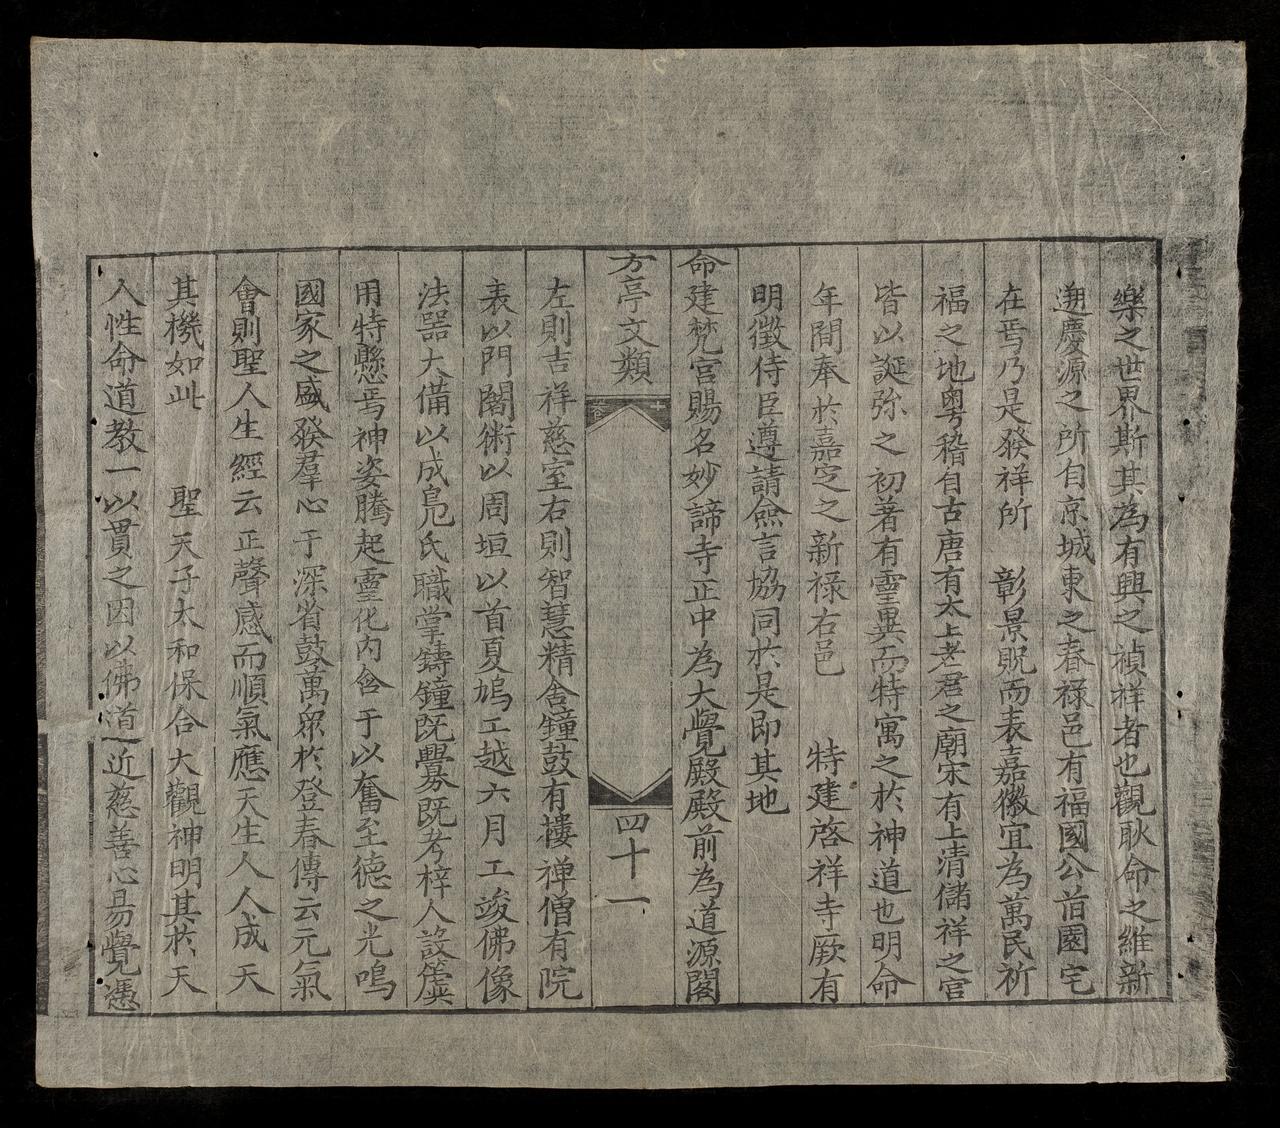 樂之世界斯其為有興之禎祥者也觀耿命之維新
遡慶源之所自京城東之春祿邑有福國公苜園宅
在焉乃是發祥所　彰景貺而表嘉徽宜為萬民祈
福之地粵稽自古唐有太上老君之廟宋有上清儲祥之宮
皆以誕弥之初著有靈異而特寓之於神道也明命
年間奉於嘉定之新祿右邑　特建啓祥寺厥有
明徵侍臣遵請僉言協同於是即其地
命建梵宮賜名妙諦寺正中為大覺殿殿前為道源閣
方亭文類
四十一
左則吉祥慈室右則智慧精舍鐘鼓有樓禅僧有院
表以門闍術以周垣以首夏鳩工越六月工竣佛像
法器大備以成鳧氏職掌鑄鐘既釁既考梓人設簨
用特懸焉神姿騰起靈化內含于以奮至德之光鳴
國家之盛發羣心于深省鼓萬眾於登春傳云元氣
會則聖人生經云正聲感而順氣應天生人人成天
其機如此　聖天子太和保合大觀神明其於天
人性命道教一以貫之因以佛道近慈善心易覺愚